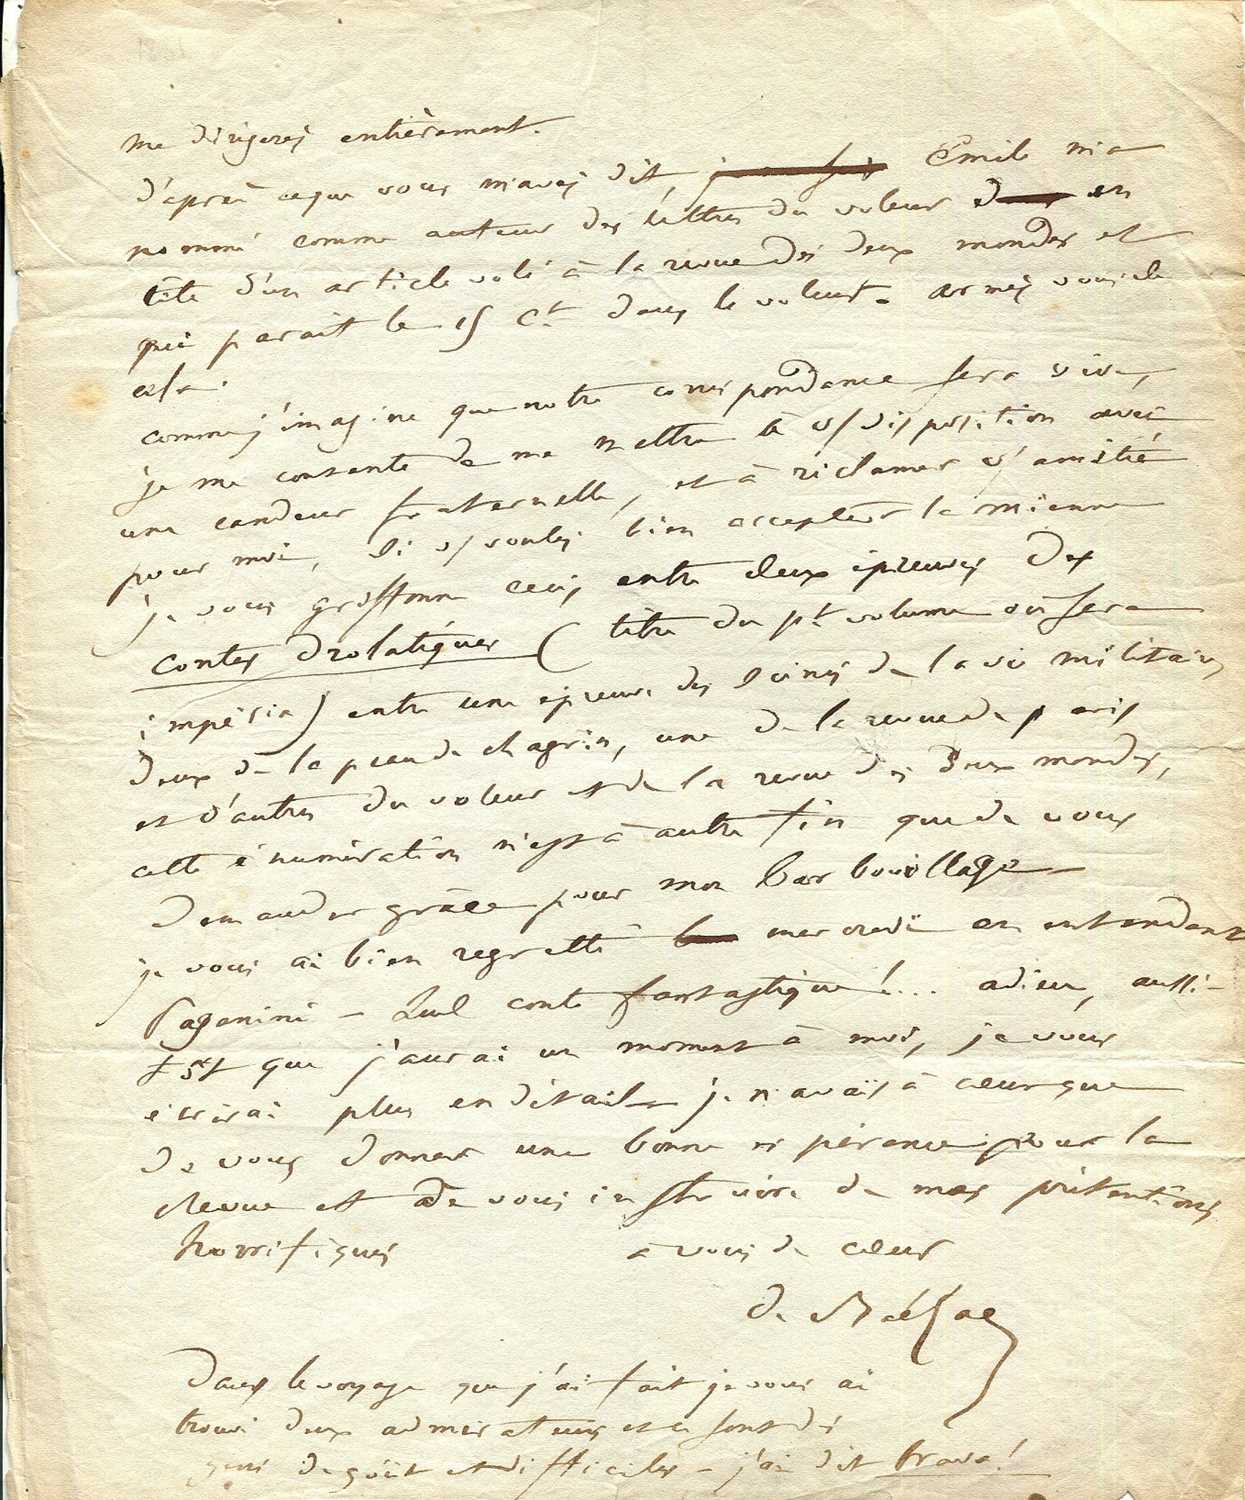 me dirigerez entièrement.
d'après ce que vous m'avez dit, Emile m'a
nommé comme auteur des lettres du voleur en
tête d'un article volé à la revue des deux mondes et
qui parait le 15 Ct dans le voleur. armez vous de
cela.
comme j'imagine que notre correspondance sera vive,
je me contente de me mettre à v/ disposition avec
une candeur fraternelle, et à réclamer v/ amitié
pour moi, si v/ voulez bien accepter la mienne
je vous griffonne ceci, entre deux épreuves des
contes drolatiques (titre du pt volume où sera
impéria) entre une épreuve des scènes de la vie militaire,
deux de la peau de chagrin, une de la revue de paris
et d'autres du voleur et de la revue des deux mondes,
cette énumération n'est à autre fin que de vous
demander grâce pour mon barbouillage
je vous ai bien regretté mercredi en entendant
Paganini - Quel conte fantastique!... adieu, aussi-
tôt que j'aurai un moment à moi, je vous
écrirai plus en détail - je n'avais à cœur que
de vous donner une bonne espérance pour la
Revue et de vous instruire de mes prétentions
horrifiques à vous de cœur
de Balzac
Dans le voyage que j'ai fait je vous ai
trouvé deux admirateurs et ce sont des
gens de goût et difficiles - j'ai dit bravo!